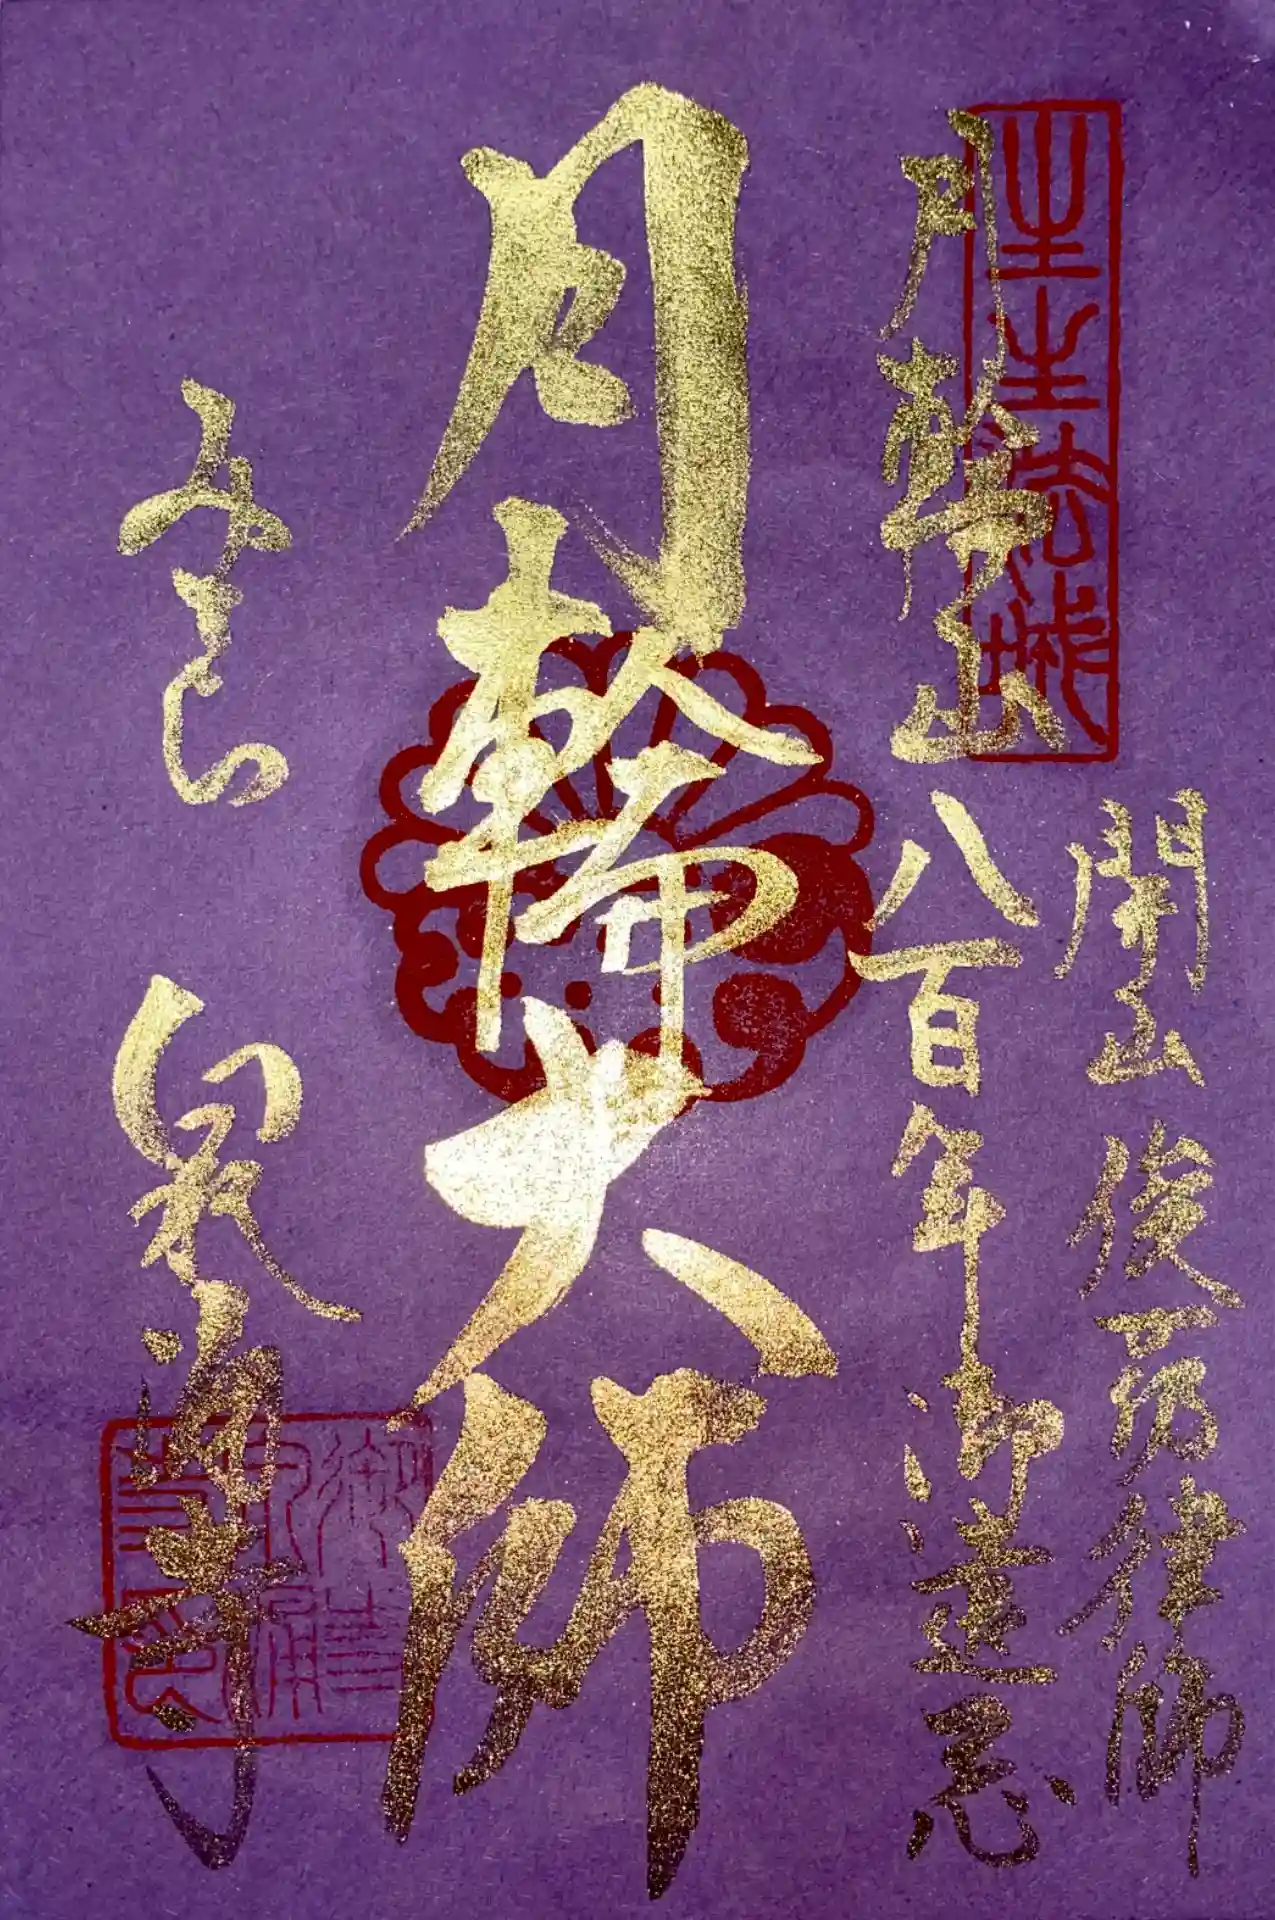 開山 俊芿律師
月輪山 八百年御遠忌
月輪大師
みてら 泉涌寺